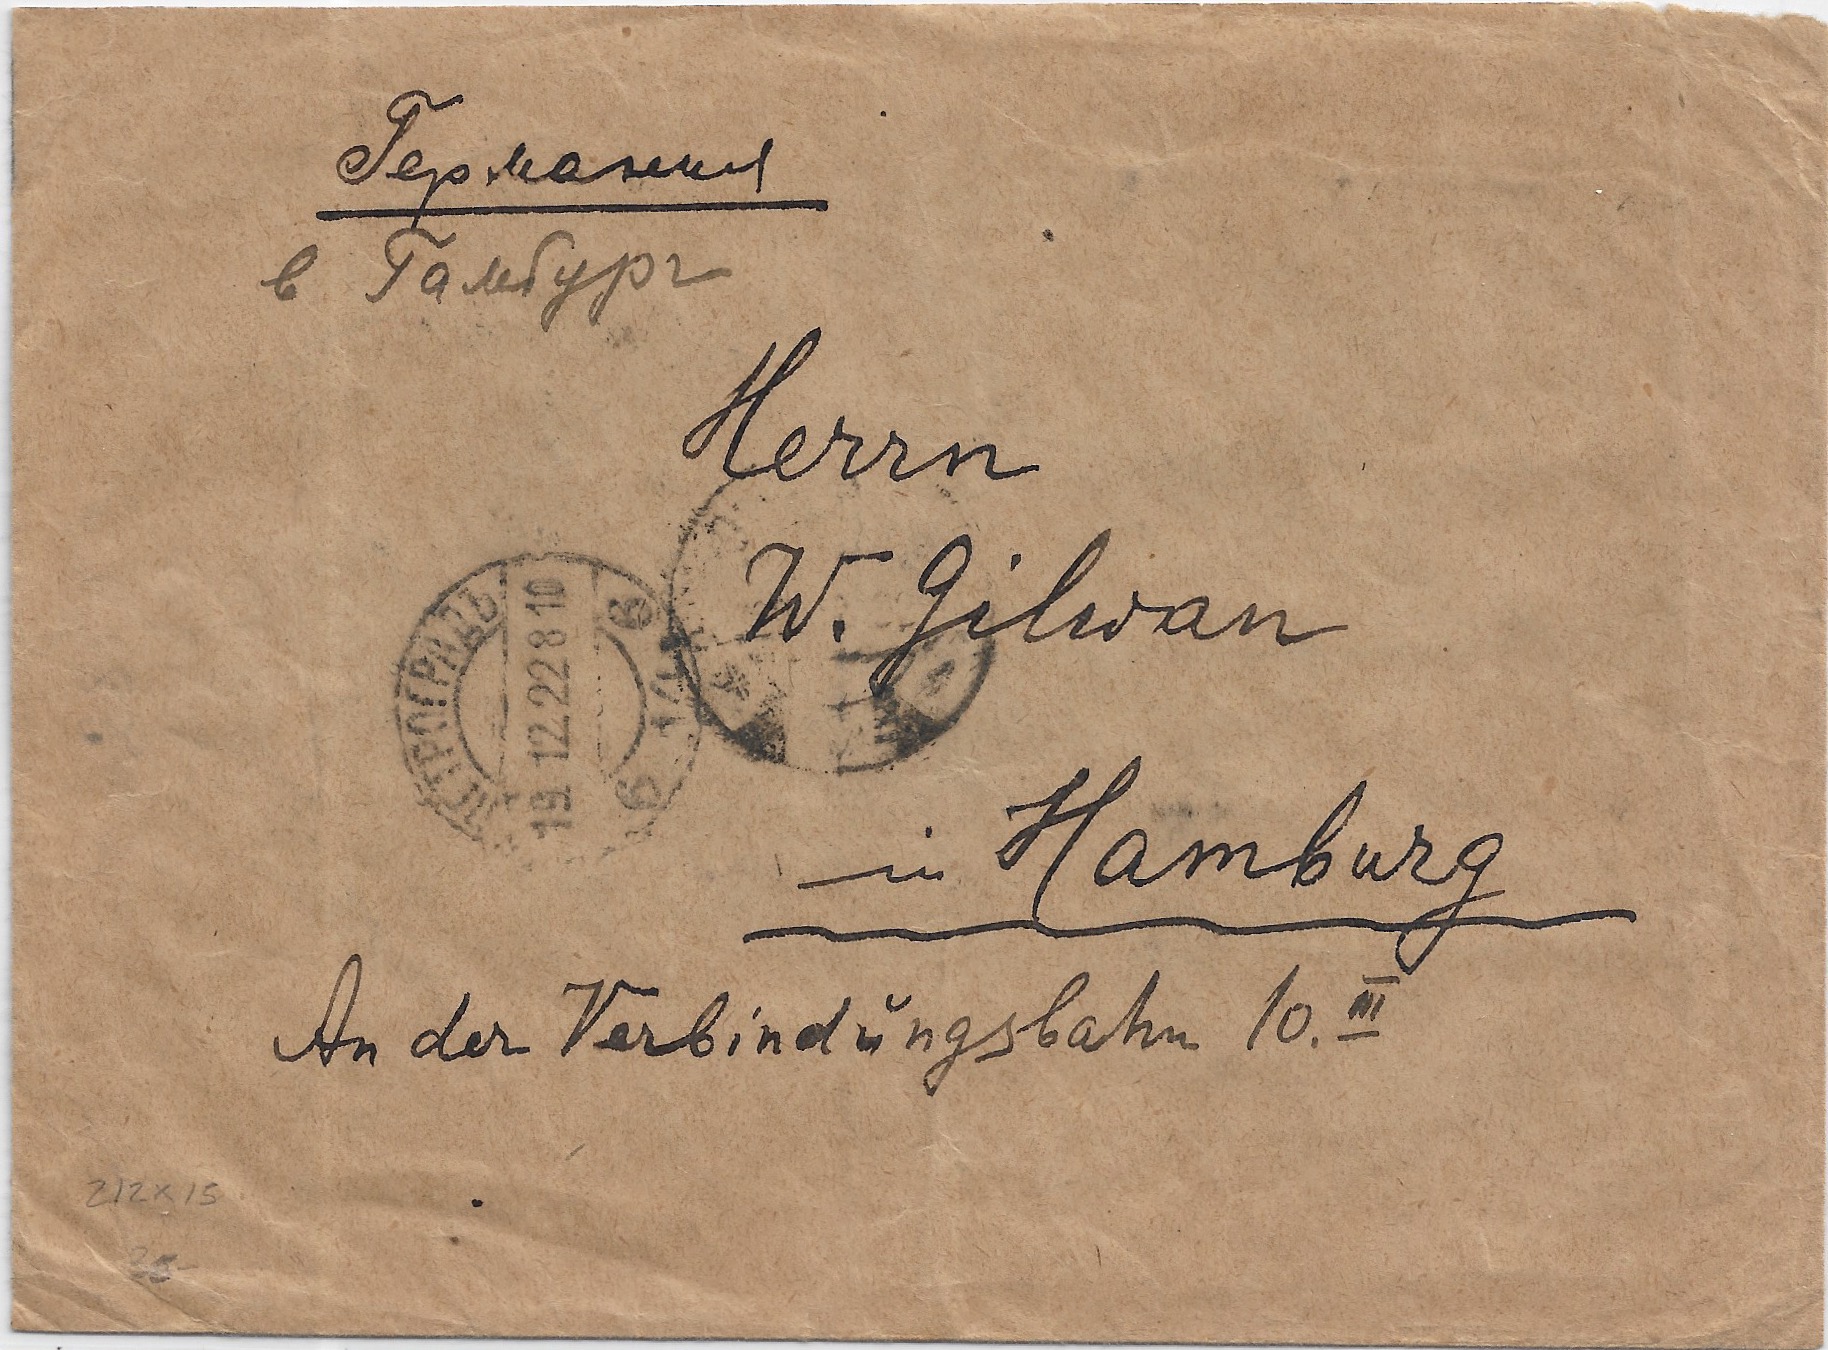 Германия
в Гамбург
Herrn
W. Gilwan
in Hamburg
An der Verbindŭngsbahn 10. III
ПЕТРОГРАДЪ
19.12.22 8 10
212 x 15